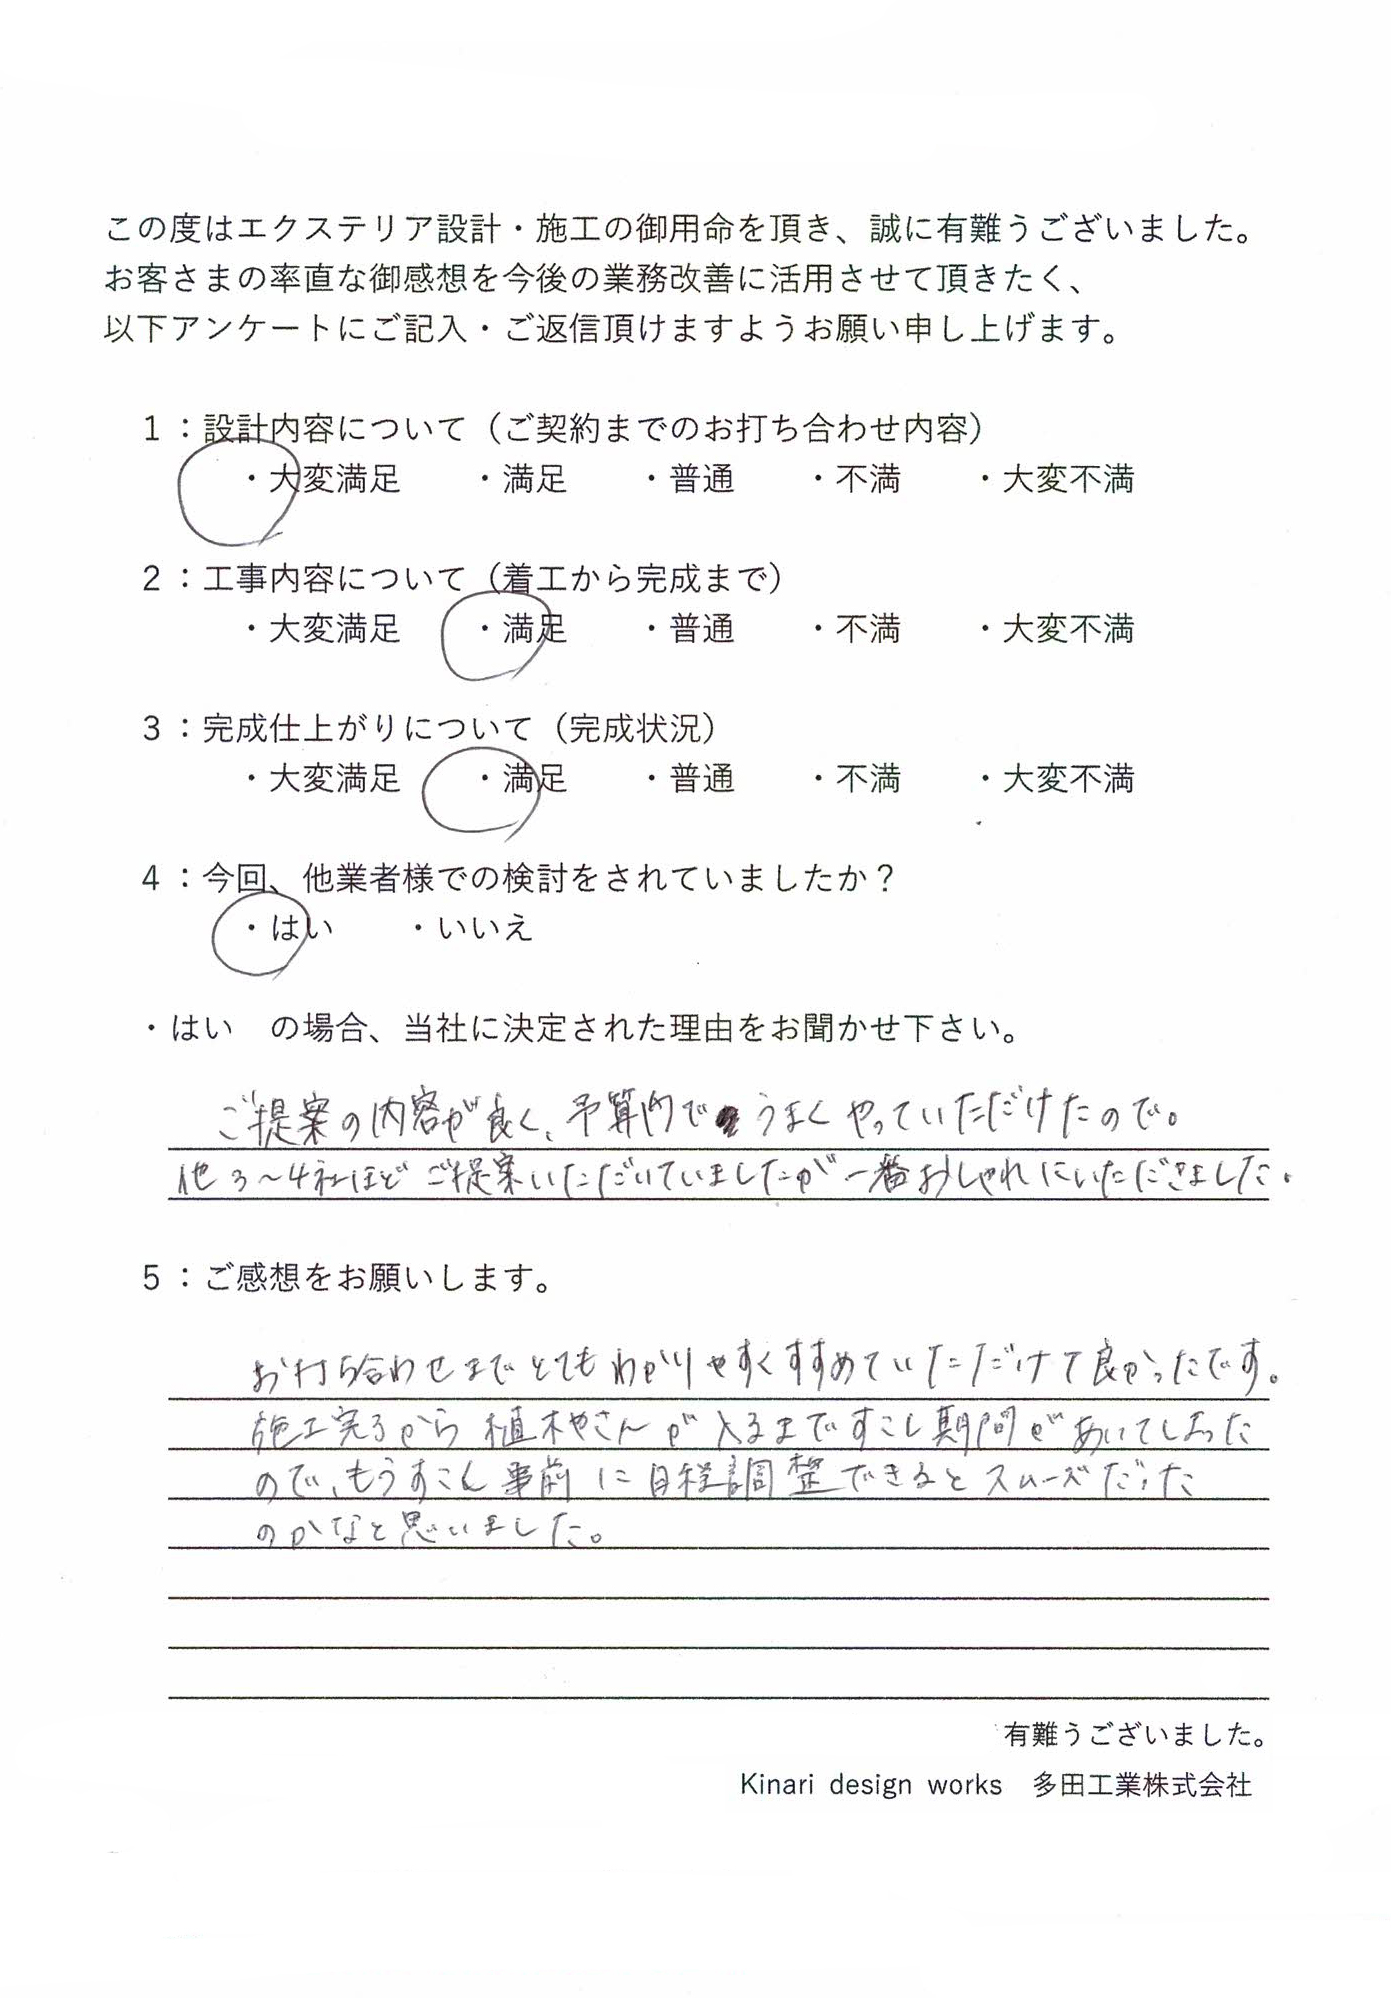 この度はエクステリア設計・施工の御用命を頂き、誠に有難うございました。
お客さまの率直な御感想を今後の業務改善に活用させて頂きたく、
以下アンケートにご記入・ご返信頂けますようお願い申し上げます。
1：設計内容について（ご契約までのお打ち合わせ内容）
・大変満足　・満足　・普通　・不満　・大変不満
2：工事内容について（着工から完成まで）
・大変満足　・満足　・普通　・不満　・大変不満
3：完成仕上がりについて（完成状況）
・大変満足　・満足　・普通　・不満　・大変不満
4：今回、他業者様での検討をされていましたか？
・はい　・いいえ
・はい　の場合、当社に決定された理由をお聞かせ下さい。
ご提案の内容が良く、予算内でうまくやっていただけたので。
他3〜4社ほどご提案いただいていましたが一番おしゃれにいただきました。
5：ご感想をお願いします。
お打ち合わせまでとてもわかりやすくすすめていただけて良かったです。
施工完了から植木やさんが入るまですこし期間があいてしまった
ので、もうすこし事前に日程調整できるとスムーズだった
のかなと思いました。
有難うございました。
Kinari design works　多田工業株式会社